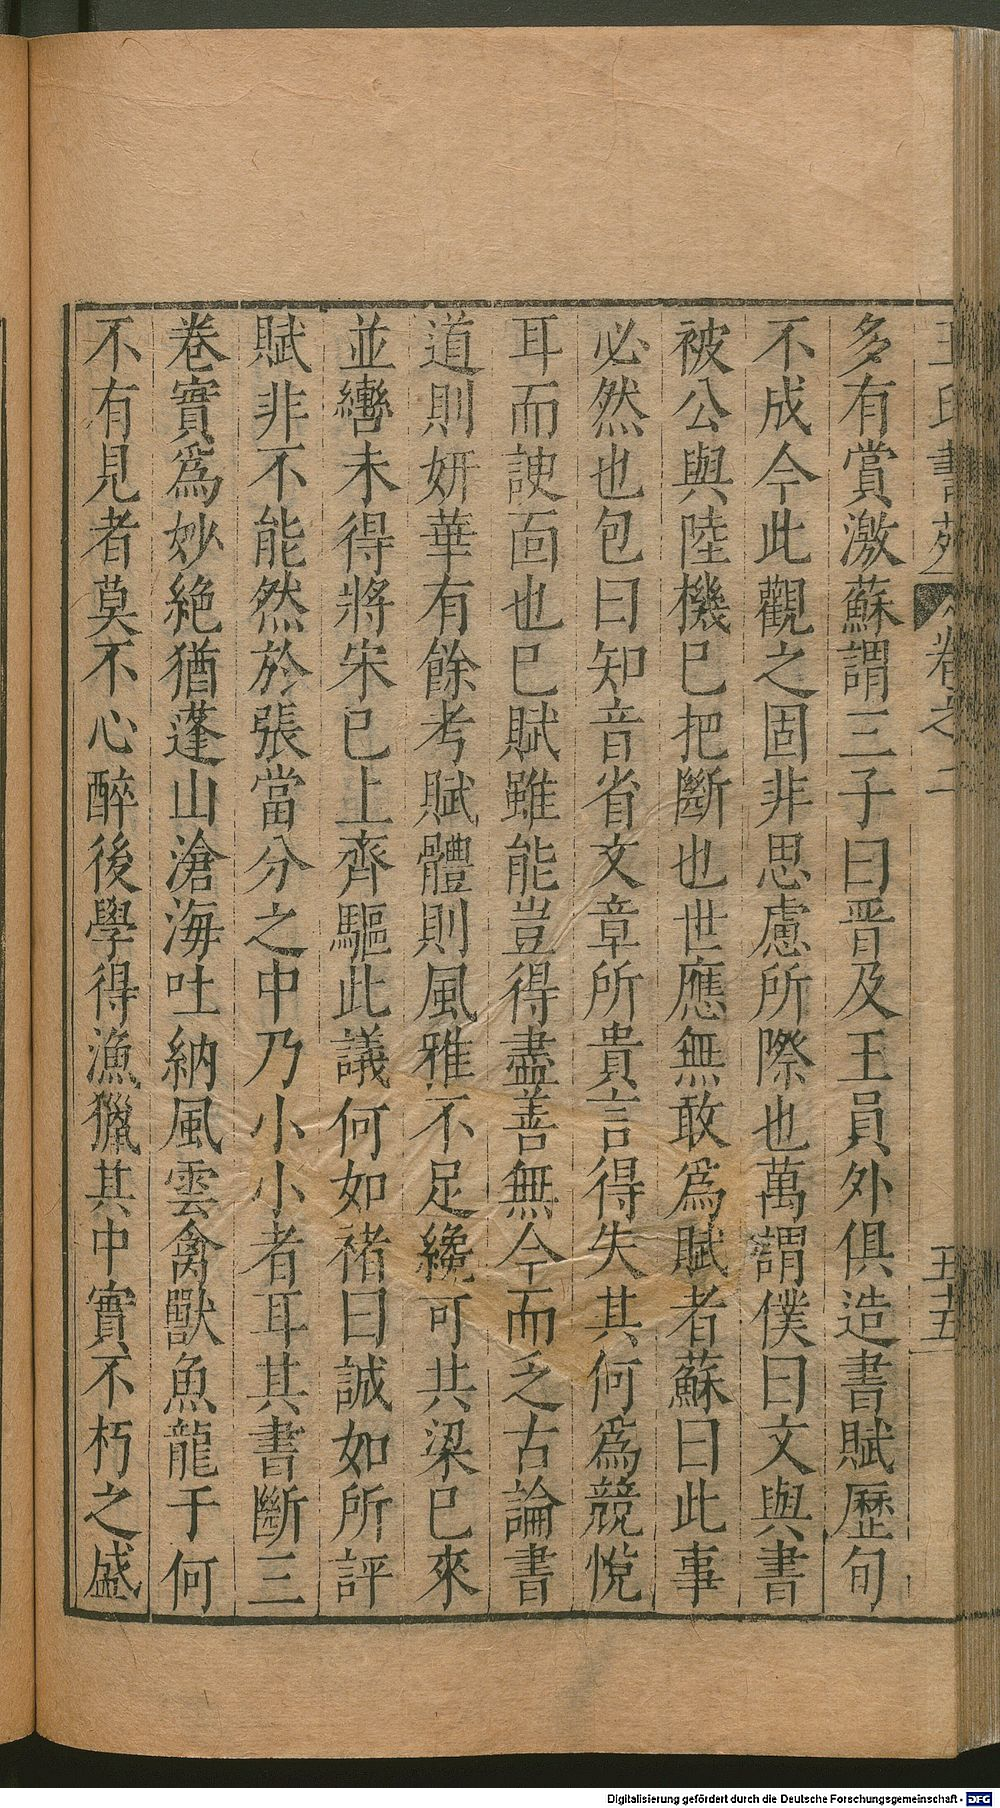 王氏書苑 卷之二 五十五
多有賞激蘇謂三子曰晋及王員外俱造書賦歷旬
不成今此觀之固非思慮所際也萬謂僕曰文與書
被公與陸機已把斷也世應無敢爲賦者蘇曰此事
必然也包曰知音省文章所貴言得失其何爲競悅
耳而諛面也已賦雖能豈得盡善無今而乏古論書
道則妍華有餘考賦體則風雅不足纔可共梁已來
並轡未得將宋已上齊驅此議何如褚曰誠如所評
賦非不能然於張當分之中乃小小者耳其書斷三
卷實爲妙絶猶蓬山滄海吐納風雲禽獸魚龍于何
不有見者莫不心醉後學得漁獵其中實不朽之盛
Digitalisierung gefördert durch die Deutsche Forschungsgemeinschaft - DFG